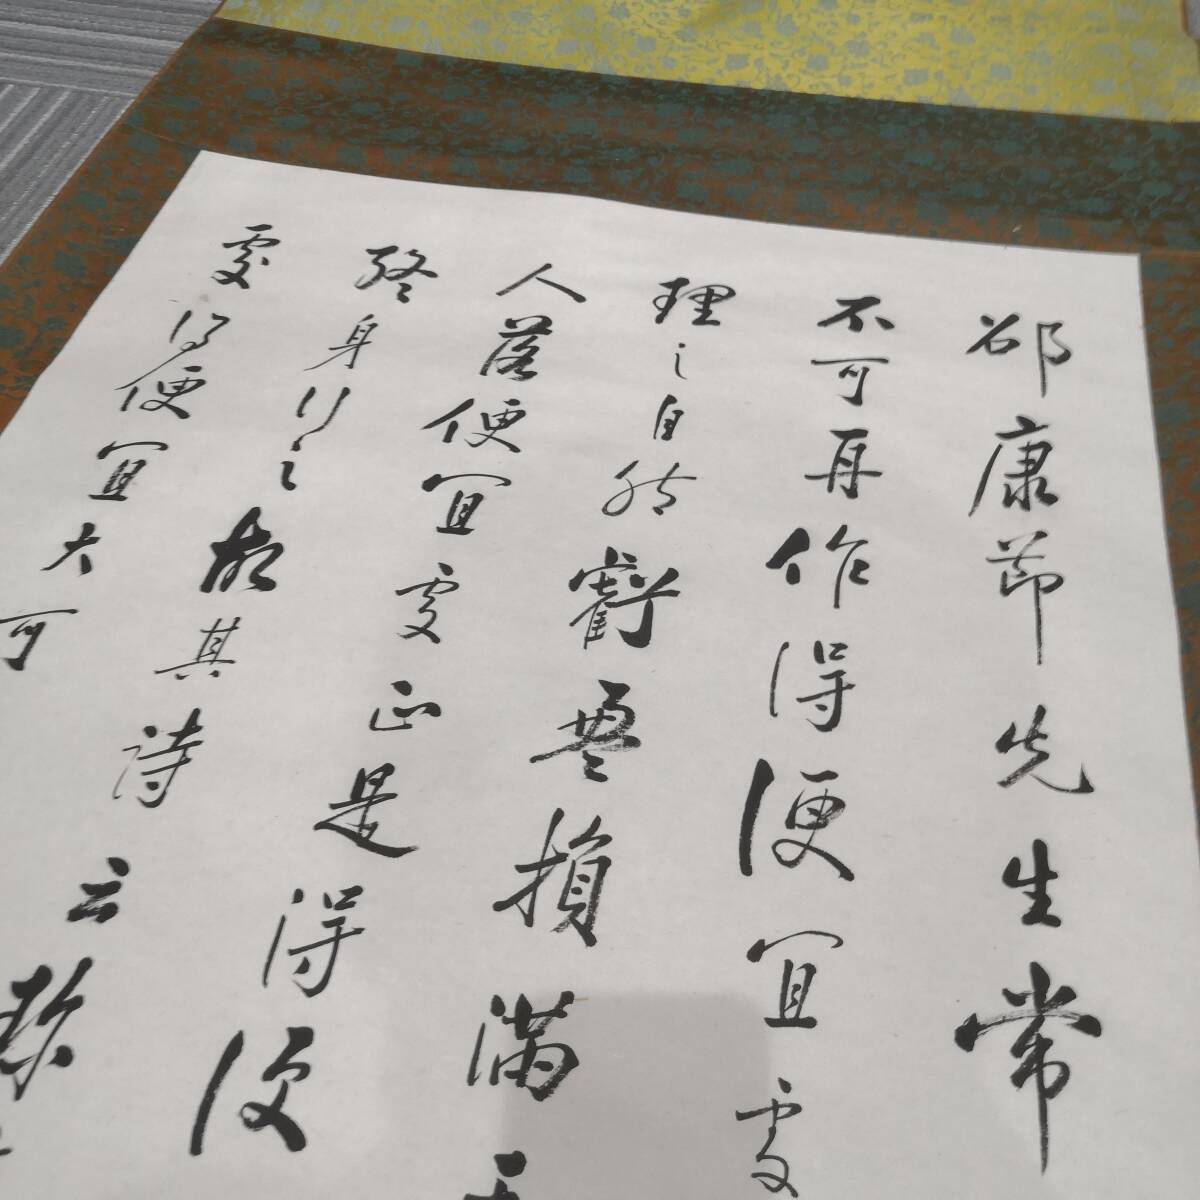 邵康節先生常
不可再作得便宜處
理之自然虧盈損滿
人落便宜處正是得便
終身行之故其詩云
處得便宜大可